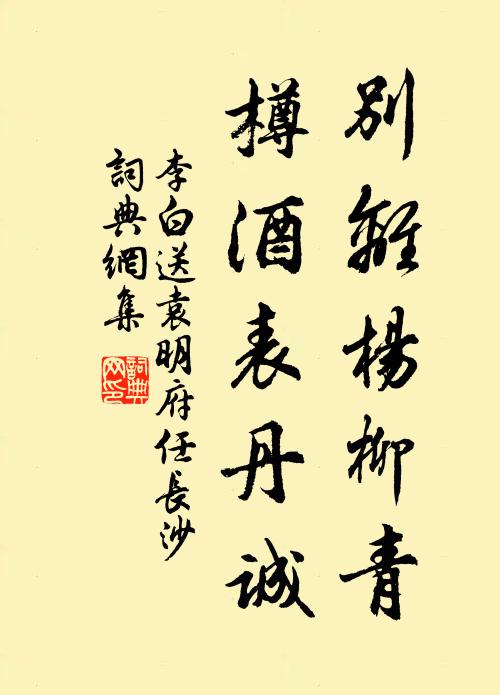 別離楊柳青
樽酒表丹誠
李白送袁明府任長沙
詞典網集
詞典网印